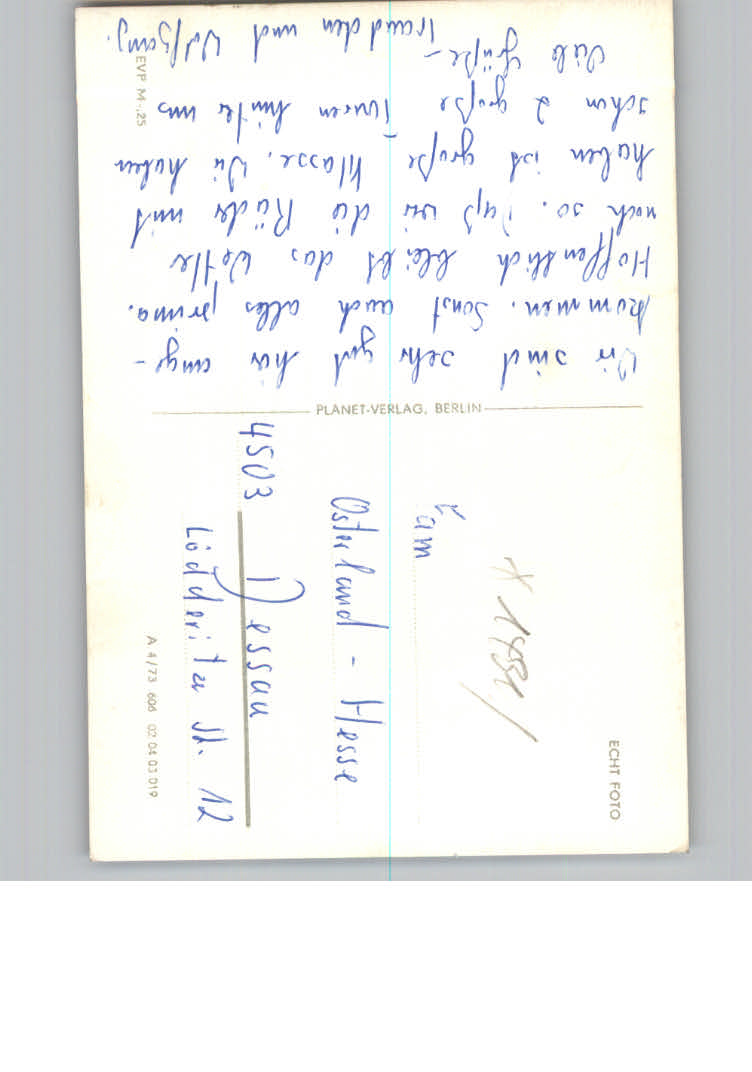 Wir sind sehr gut hier ange-
kommen. Sonst auch alles prima.
Hoffentlich bleibt das Wetter
noch so. Daß wir die Räder mit
haben ist große Klasse. Wir haben
schon 2 große Touren hinter uns
Viele Grüße –
Traudchen und Wolfgang.
EVP M -,25
PLANET-VERLAG, BERLIN
Fam
Osterland - Hesse
4503 Dessau
Lödderitzer Str. 12
ECHT FOTO
A 4/73 606 02 04 03 019